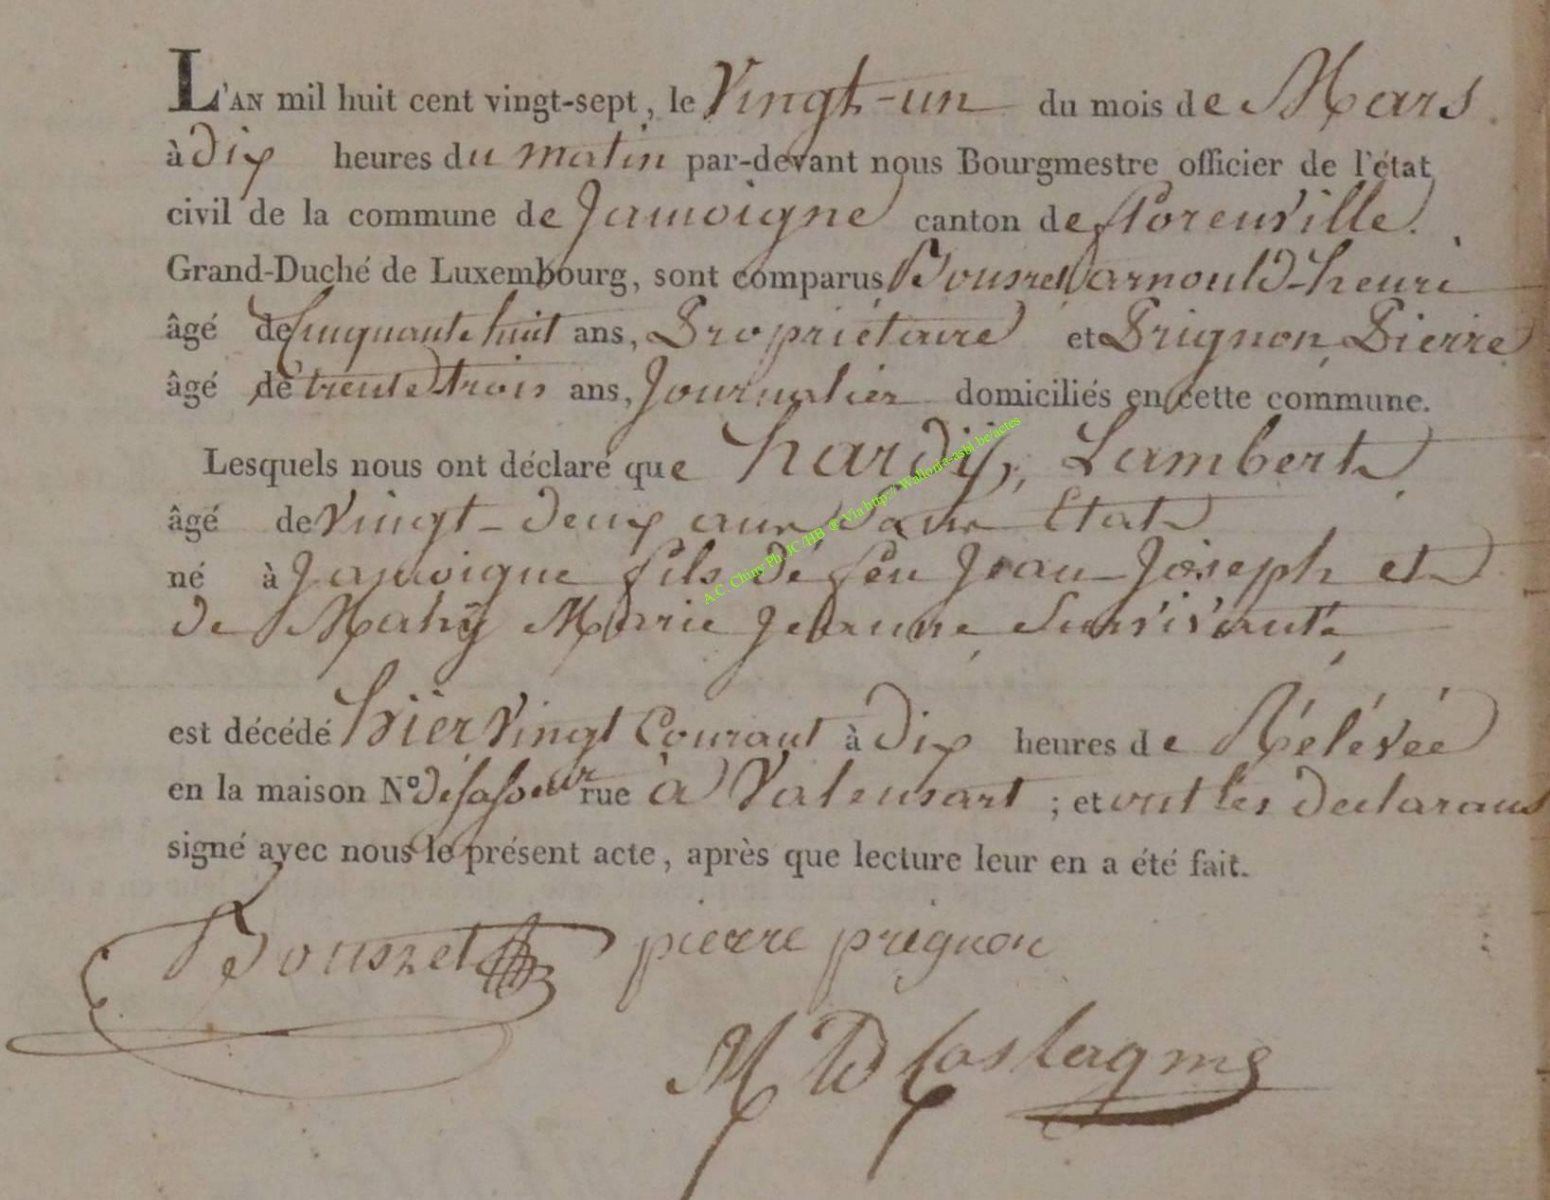 L'AN mil huit cent vingt-sept, le Vingt-un du mois de Mars.
à dix heures du matin par-devant nous Bourgmestre officier de l'état
civil de la commune de Jamoigne canton de florenville.
Grand-Duché de Luxembourg, sont comparus arnould-henri
âgé de Cinquante huit ans, Propriétaire et Prignon Pierre
âgé de trente trois ans, Journalier domiciliés en cette commune.
Lesquels nous ont déclaré que hardÿ, Lambert
âgé de Vingt-deux ans sans Etat
né à Jamoigne fils de feu Jean-Joseph et
de Mahÿ Marie Jeanne Survivante
est décédé hier Vingt Courant à dix heures de Rélévée
en la maison N° rue à Valensart ; et ont les declarans
signé avec nous le présent acte, après que lecture leur en a été fait.
pierre prignon
A.C. Chiny Ph JC /HB ® Via http:// Wallonia-asbl.be/actes